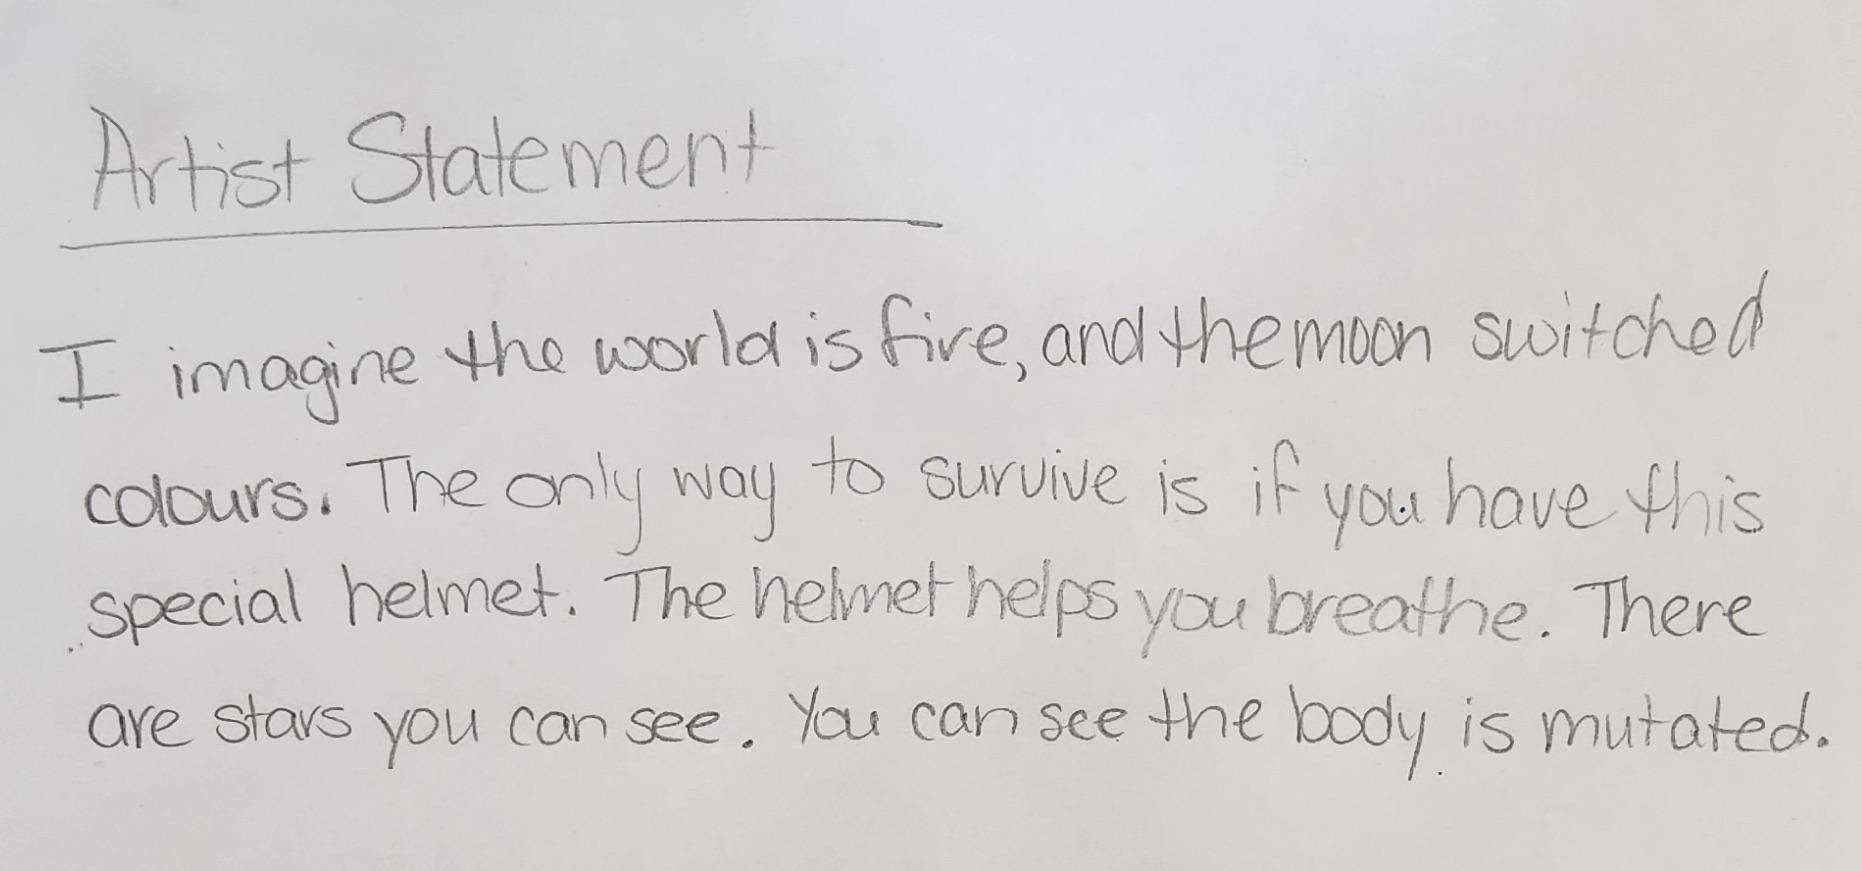 Artist Statement
I imagine the world is fire, and the moon switched
colours. The only way to survive is if you have this
special helmet. The helmet helps you breathe. There
are stars you can see. You can see the body is mutated.